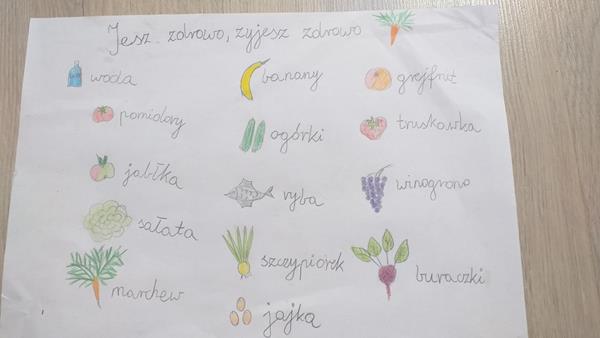 Jesz zdrowo, żyjesz zdrowo
woda
banany
grejfrut
pomidory
ogórki
truskawka
jabłka
ryba
winogrono
sałata
szczypiorek
buraczki
marchew
jajka